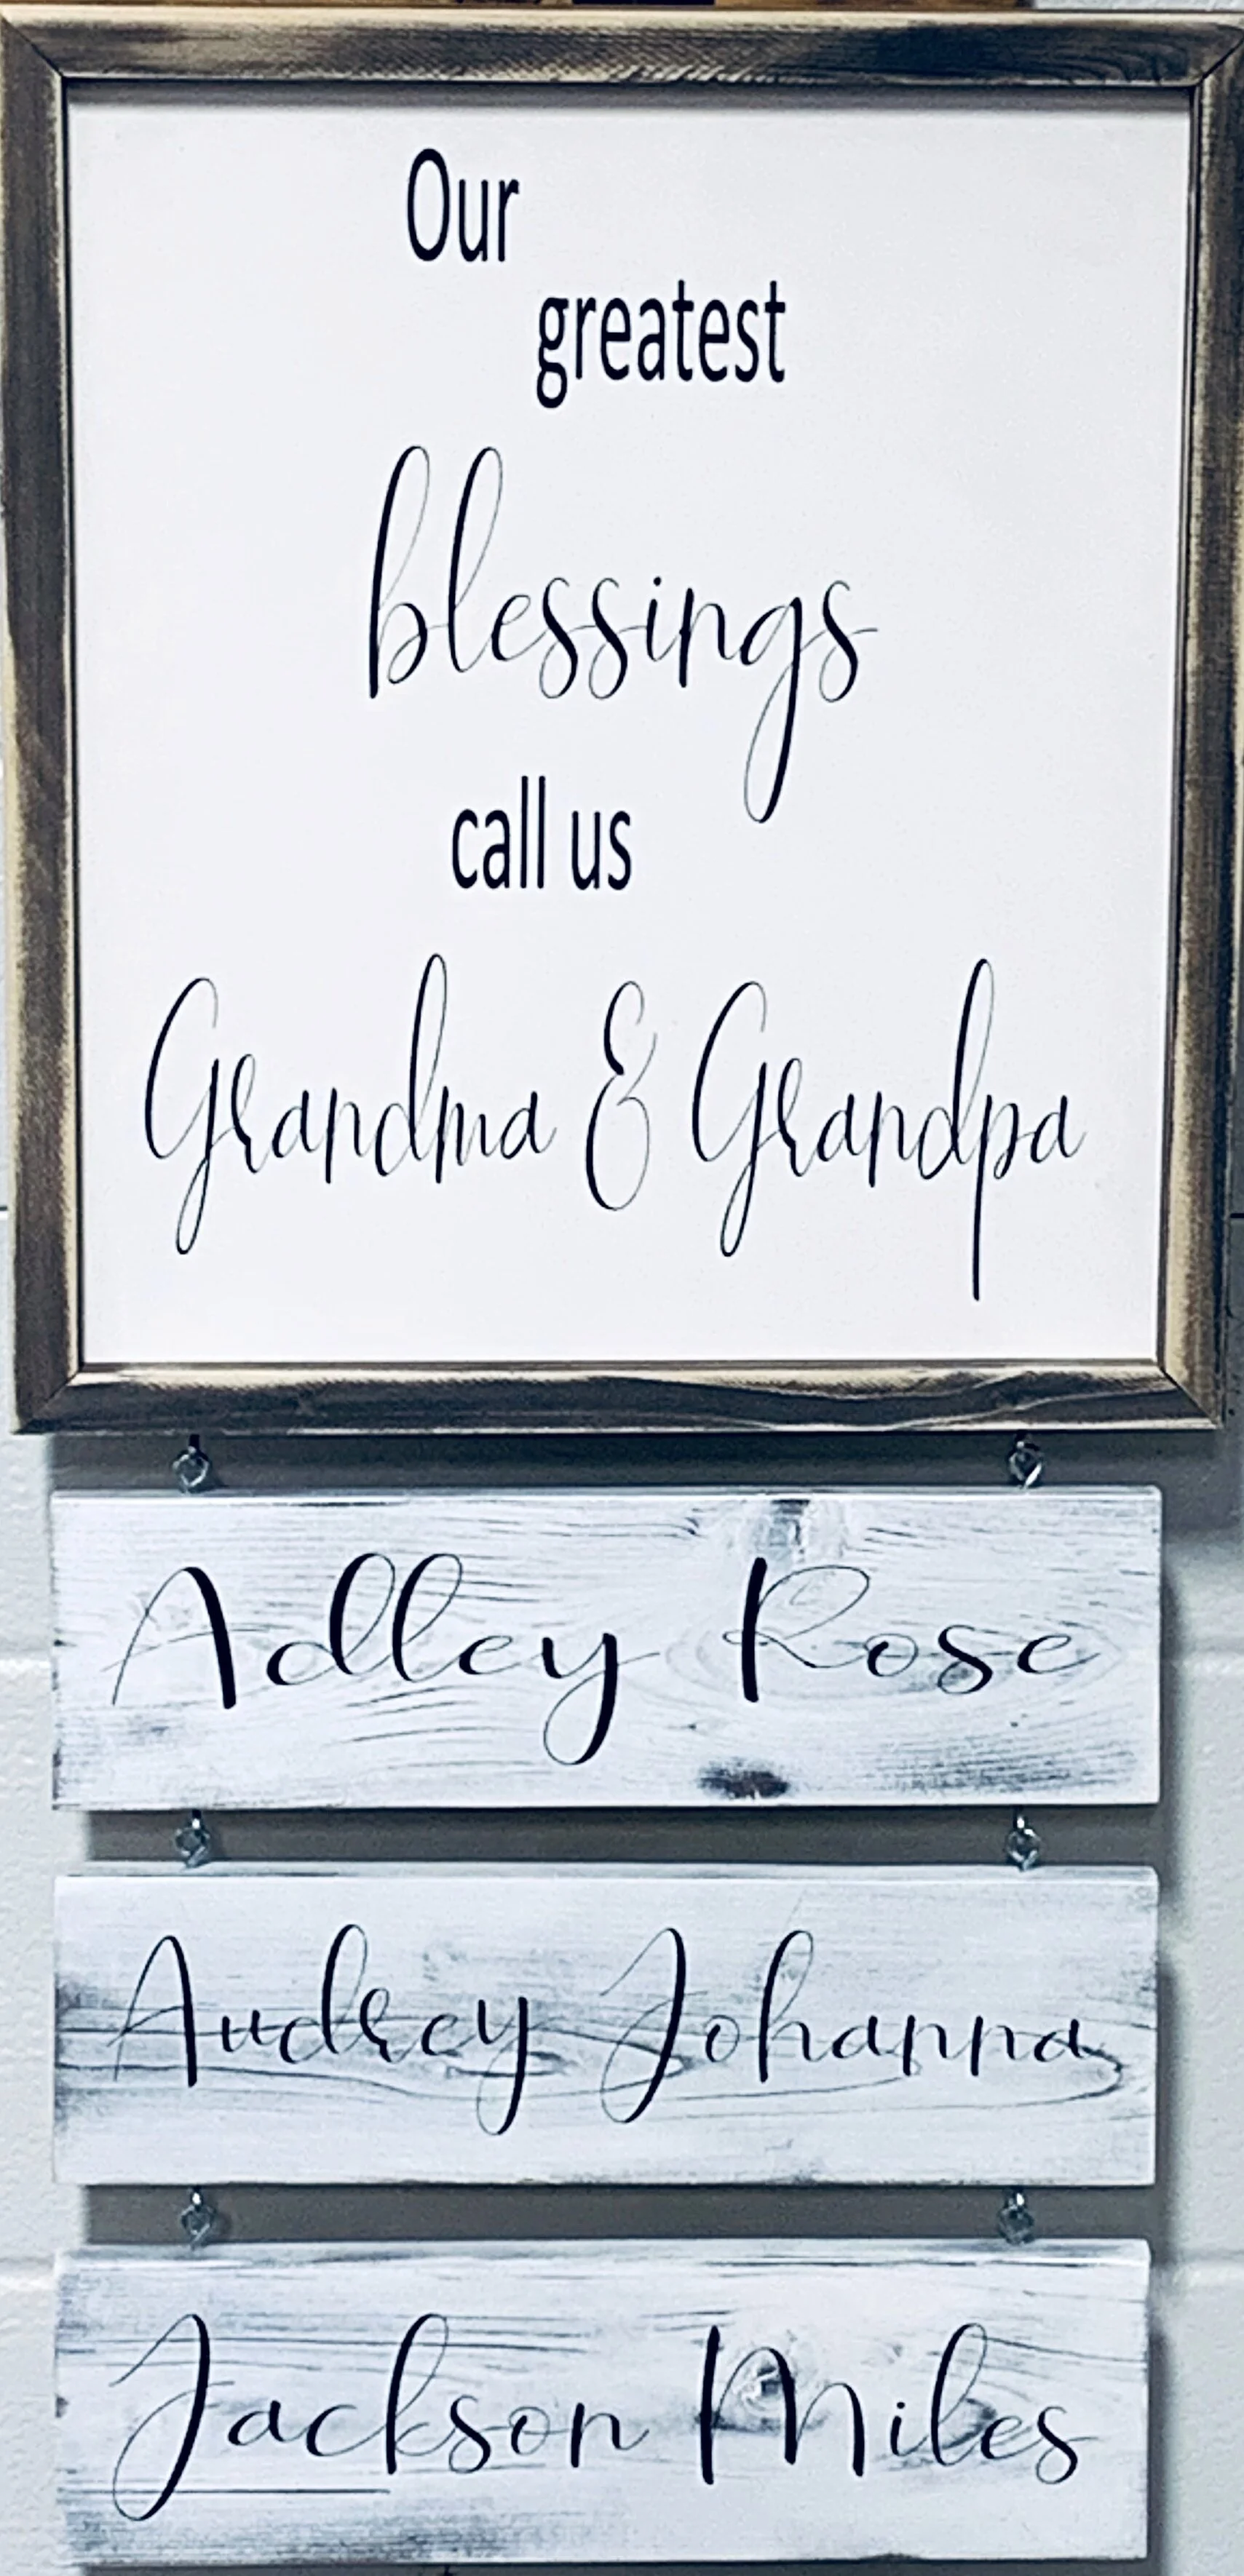 Our
greatest
blessings
call us
Grandma & Grandpa
Adley Rose
Audrey Johanna
Jackson Miles